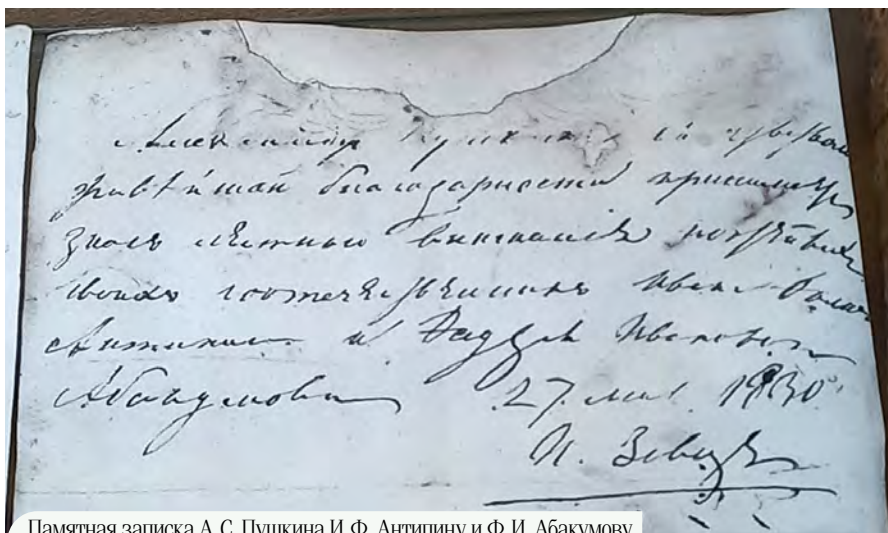 Александр Пушкин съ чувством
живѣйшей благодарности принимает
знакъ лестнаго внимания почтенных
своихъ соотечественников Ивана Фомича
Антипина и Фаддея Ивановича
Абакумова 27 мая 1830.
П. Заводъ
Памятная записка А. С. Пушкина И. Ф. Антипину и Ф. И. Абакумову